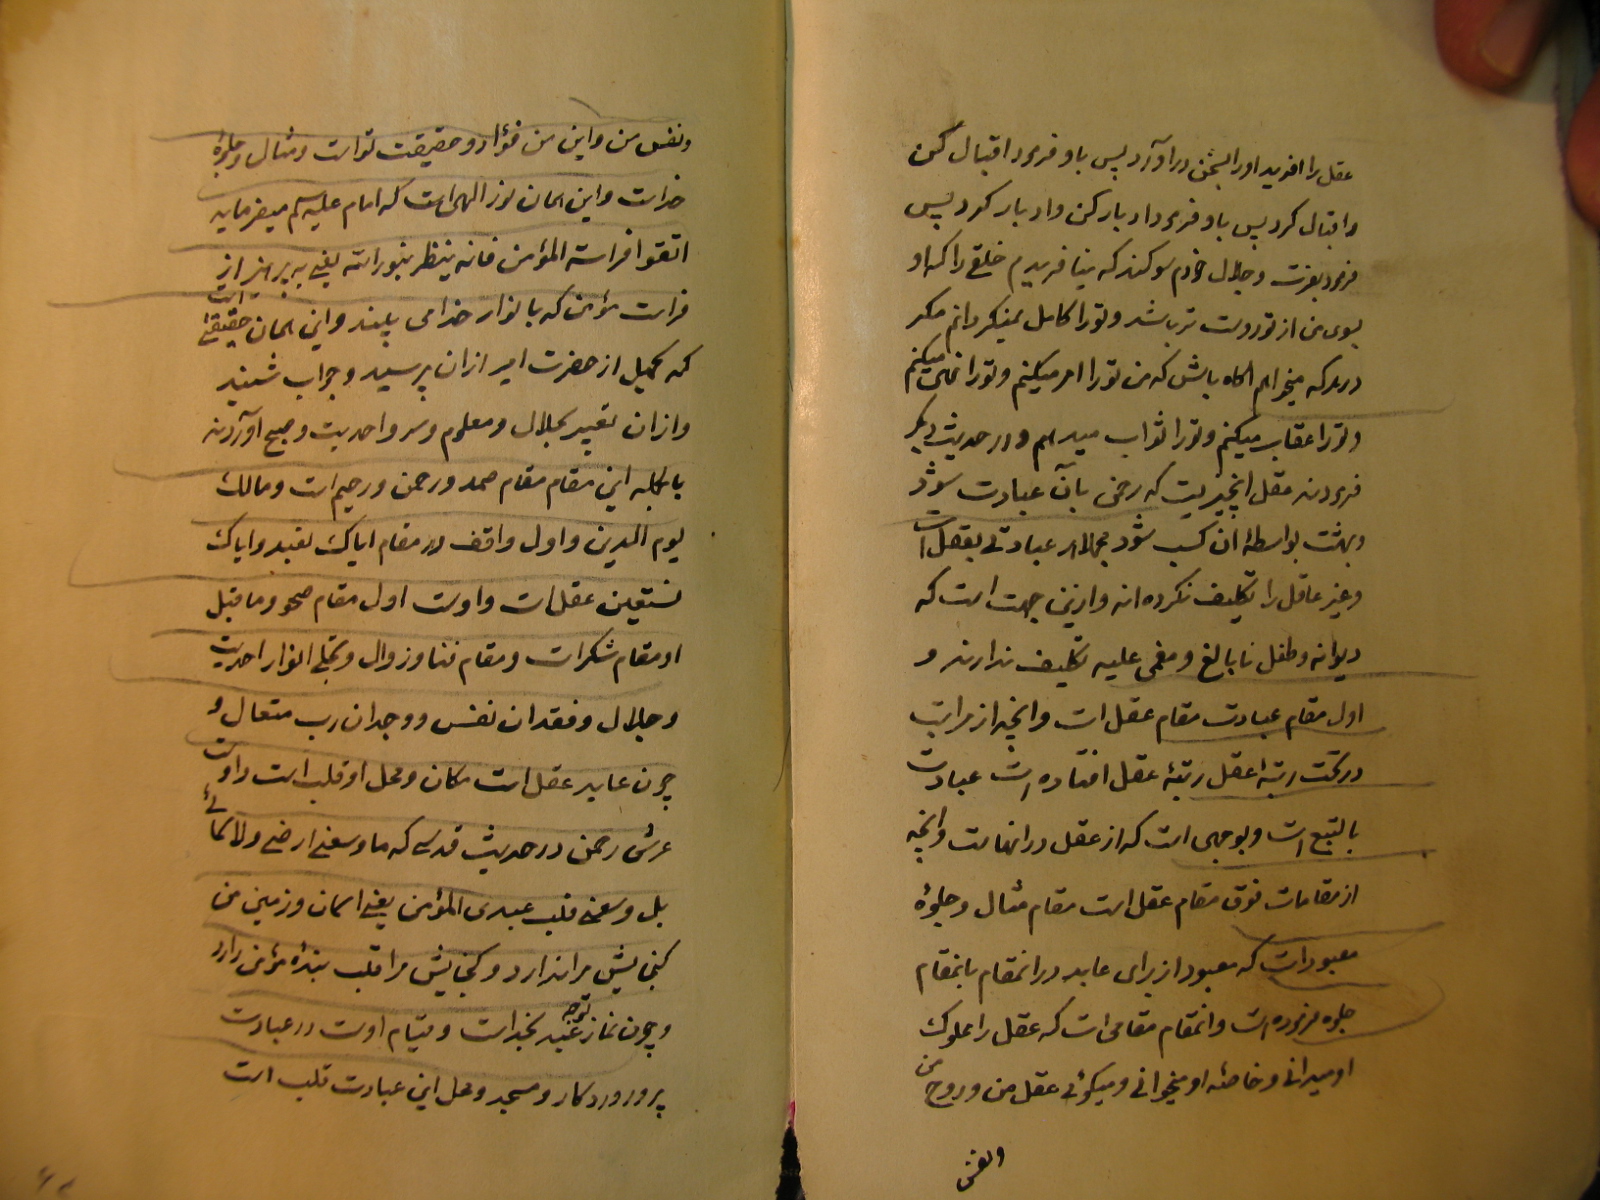 عقل را افرید او را بسخن دراورد پس باو فرمود اقبال کن
واقبال کرد پس باو فرمود ادبار کن وادبار کرد پس
فرمود بعزت و جلال خودم سوکند که نیافریدم خلقی را که او
بسوی من از تو دوست تر باشد و تو را کامل نمیکردانم مکر
در هر که میخواهم اکاه باش که من تو را امر میکنم و تو را نهی میکنم
و تو را عقاب میکنم و تو را ثواب میدهم و در حدیث دیکر
فرمودند عقل انچیزیست که رحمن بآن عبادت شود
وبهشت بواسطۀ ان کسب شود مجملا هر عبادتی بعقل است
وغیر عاقل را تکلیف نکرده اند وازین جهت است که
دیوانه وطفل نابالغ ومغمی علیه تکلیف ندارند و
اول مقام عبادت مقام عقل است وانچه از مراتب
در تحت رتبۀ عقل رتبۀ عقل افتاده است عبادت
بالتبع است وبوجهی است که از عقل در انهاست وانچه
از مقامات فوق مقام عقل است مقام مثال وجلوۀ
معبود است که معبود از برای عابد در انمقام بانمقام
جلوه فرموده است وانمقام مقامی است که عقل را مملوک
او میدانی وخاصّه او میخوانی ومیکوئی عقل من وروح من
ونفس
ونفس من واین من فؤاد وحقیقت تو است ومثال وجلوۀ
خداست واین همان نور الهی است که امام علیه السلم میفرماید
اتقوا فراسة المؤمن فانه ینظر بنور الله یعنی بپرهیز از
فراست مؤمن که بانوار خدا می بیند واین همان حقیقتی است
که کمیل از حضرت امیر ازان پرسید وجواب شنید
وازان تعبیر بجلال ومعلوم وسر واحدیت وصبح آوردند
بالجمله این مقام مقام صمد ورحمن ورحیم است ومالک
یوم الدین واول واقف در مقام ایاک نعبد وایاک
نستعین عقل است واوست اول مقام صحو وما قبل
او مقام سکر است ومقام فنا وزوال وتجلی انوار احدیت
وجلال وفقدان نفس ووجدان رب متعال و
چون عابد عقل است مکان ومحل او قلب است واوست
عرش رحمن در حدیث قدسی که ما وسعنی ارضی ولا سمائی
بل وسعنی قلب عبدی المؤمن یعنی اسمان وزمین من
کنجایش مرا ندارد وکنجایش مرا قلب بندۀ مؤمن دارد
وچون نماز توجه عبد بخداست وقیام اوست در عبادت
پروردکار ومسجد ومحل این عبادت قلب است